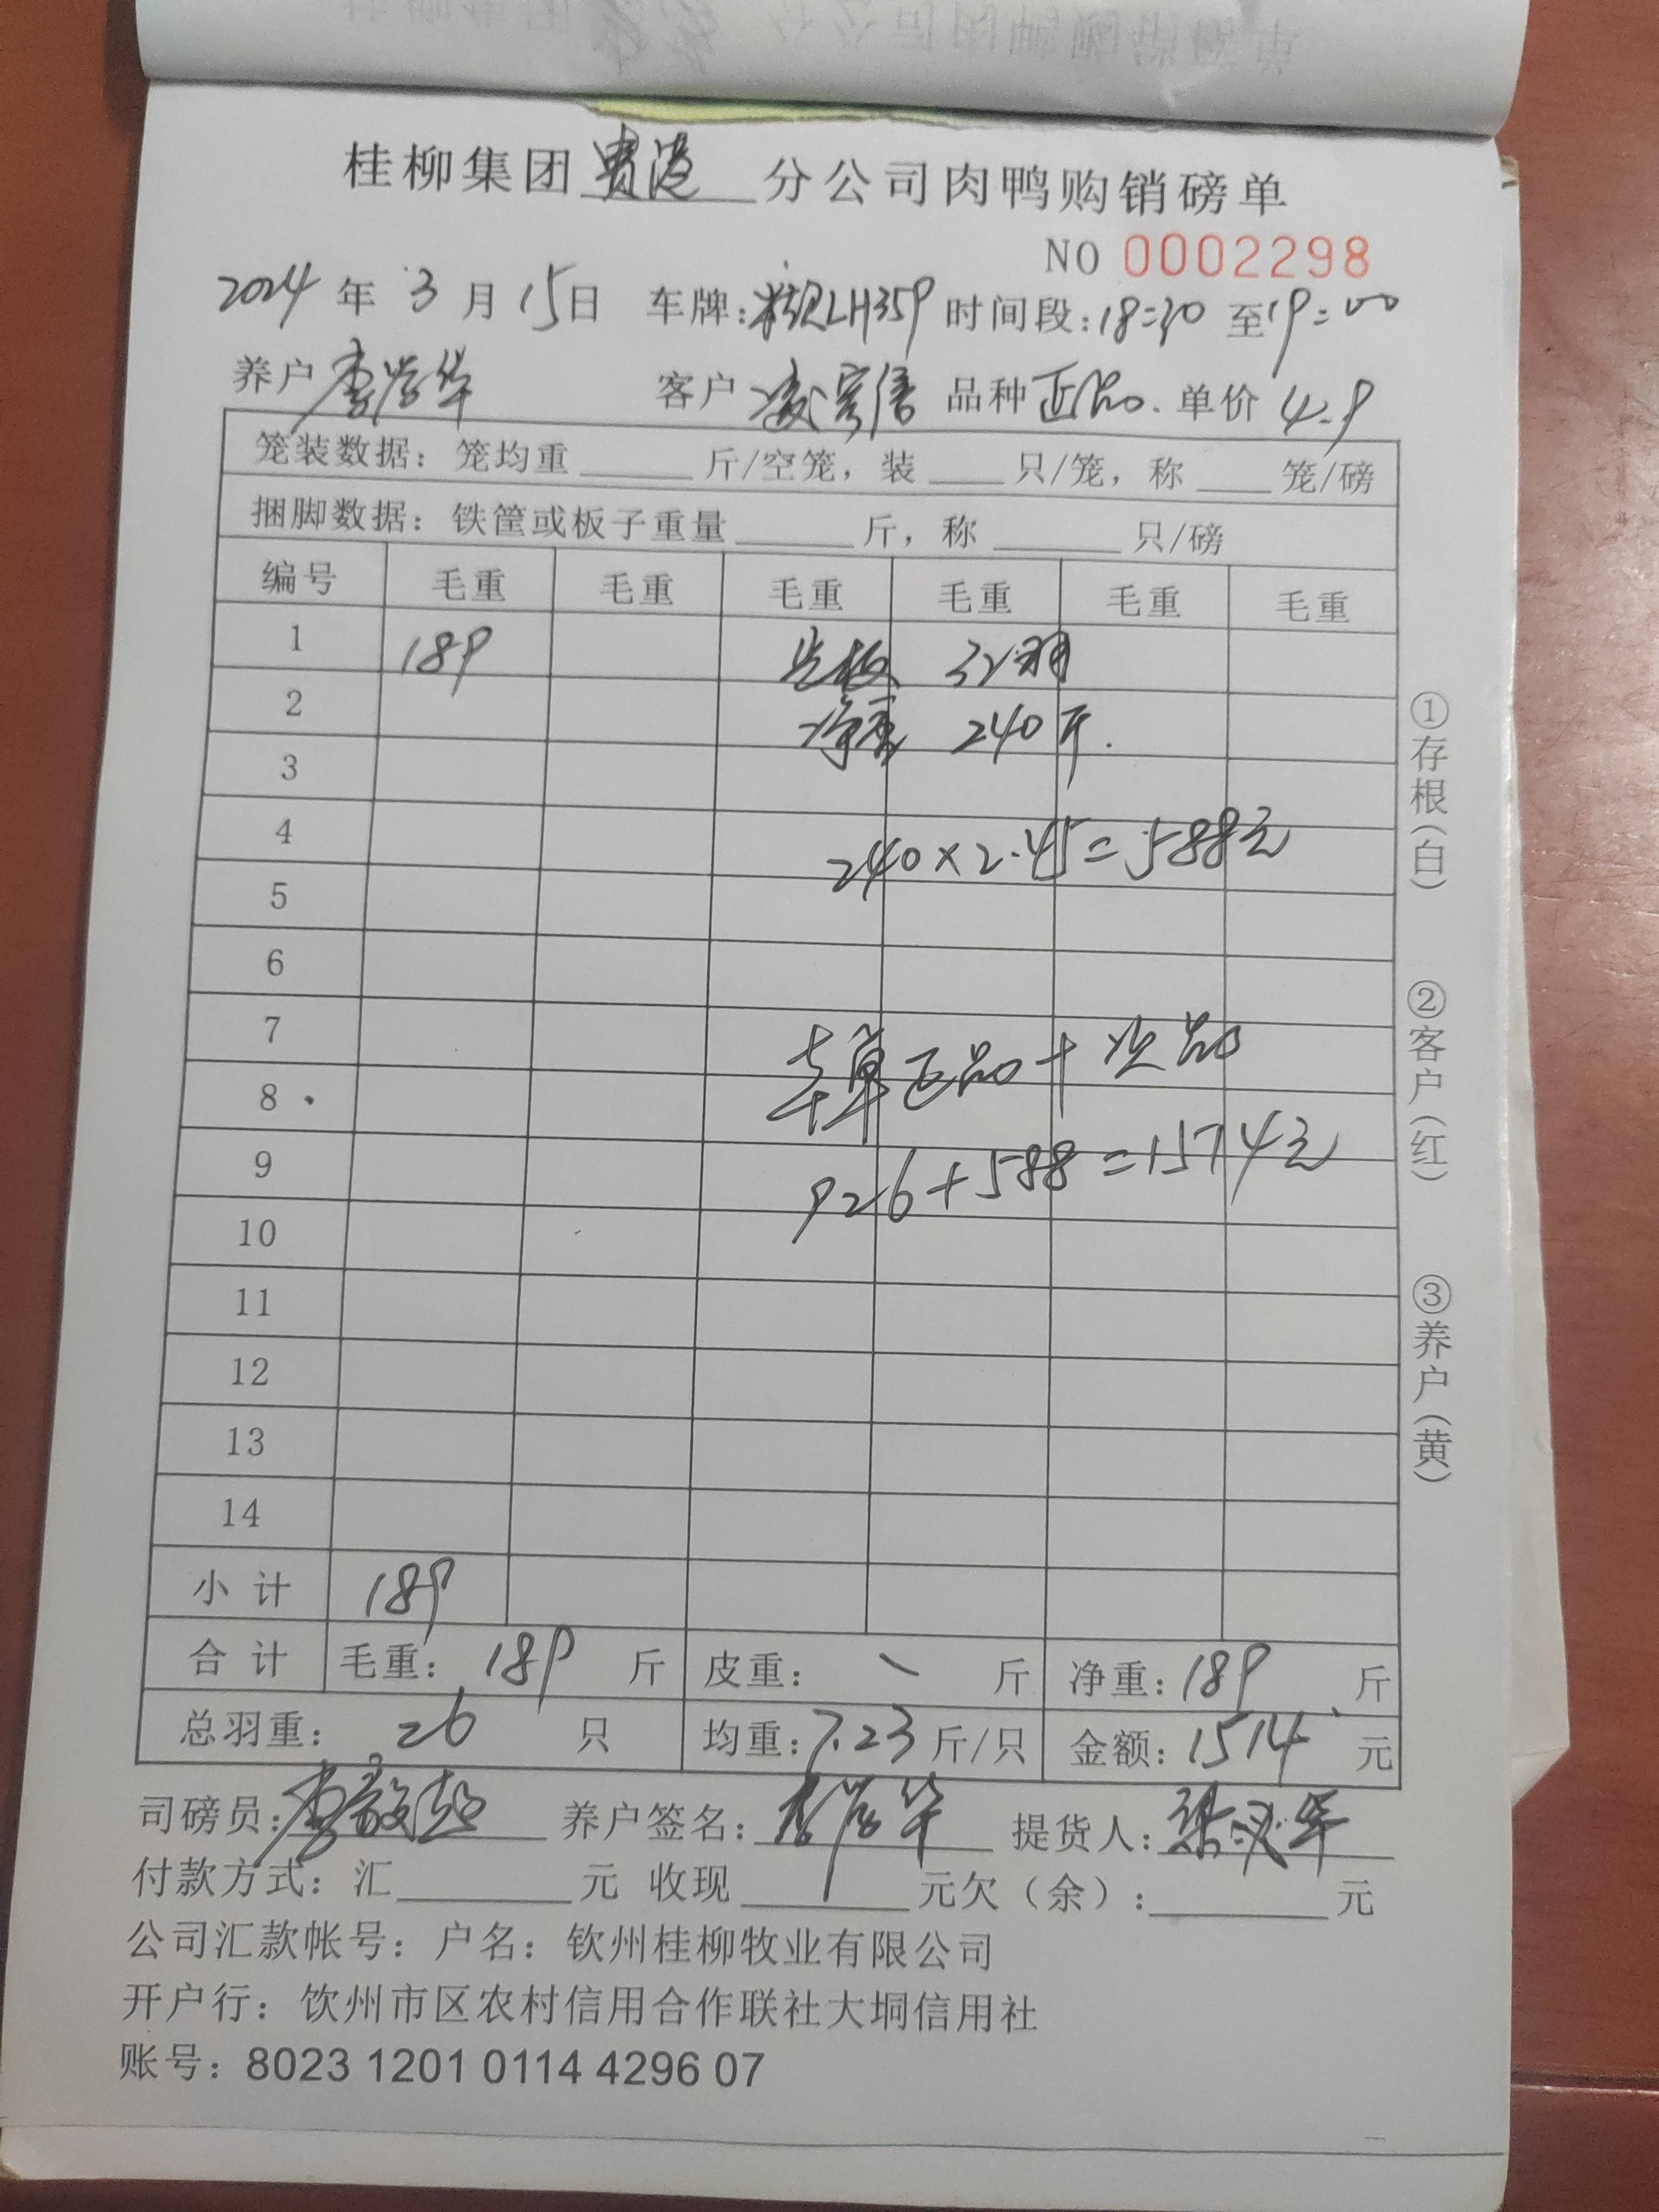 桂柳集团贵港分公司肉鸭购销磅单
NO 0002298
2024年3月15日 车牌:LH359 时间段:18:30至19:00
养户 李学华 客户 品种 正品. 单价 4.9
笼装数据:笼均重 斤/空笼,装 只/笼,称 笼/磅
捆脚数据:铁筐或板子重量 斤,称 只/磅
编号 毛重 毛重 毛重 毛重 毛重 毛重
1 189 32羽
2 净重 240斤.
3
4 240×2.45=588元
5
6
7 本单正品+次品
8
9 926+588=1514元
10
11
12
13
14
小计 189
合计 毛重:189斤 皮重:\ 斤 净重:189斤
总羽重:26只 均重:7.23斤/只 金额:1514元
司磅员: 养户签名:李学华 提货人:
付款方式:汇 元 收现 元欠(余): 元
公司汇款帐号:户名:钦州桂柳牧业有限公司
开户行:饮州市区农村信用合作联社大垌信用社
账号:8023 1201 0114 4296 07
①存根(白)
②客户(红)
③养户(黄)